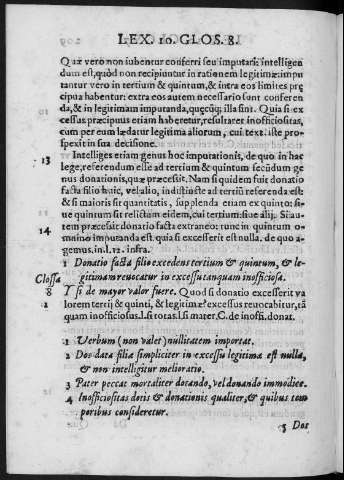 LEX. 10. GLOS. 8.
Quæ vero non iubentur conferri seu imputari: intelligen
dum est, quòd non recipiuntur in rationem legitimæ: impu
tantur vero in tertium & quintum, & intra eos limites prę
cipua habentur: extra eos autem necessario sunt conferen
da, & in legitimam imputanda, quęcūq; illa sunt. Quia si ex
cessus præcipuus etiam haberetur, resultaret inofficiositas,
cum per eum lædatur legitima aliorum, cui text. iste pro-
spexit in sua decisione.
13 Intelliges etiam genus hoc imputationis, de quo in hac
lege, referendum esse ad tertium & quintum secūdum ge
nus donationis, quæ præcessit. Nam si quidem fuit donatio
facta filio huic, vel alio, indistincte ad tertiū referenda est:
& si maioris sit quantitatis, supplenda etiam ex quinto: si-
ue quintum sit relictum eidem, cui tertium: siue alij. Si au-
14 tem præcesit donatio facta extraneo: tunc in quintum o-
mnino imputanda est. quia si excesserit est nulla. de quo a-
gemus. in. l. 12. infra.
1 Donatio facta filio excedens tertium & quintum, & le-
Glossa gitimam reuocatur in excessu tanquam inofficiosa.
8 Y si de mayor valor fuere. Quod si donatio excesserit va
1 lorem tertij & quinti, & legitimæ? excessus reuocabitur, tā
quam inofficiosus. l. si totas. l. si mater, C. de inoffi. donat.
1 Verbum (non valet) nullitatem importat.
2 Dos data filiæ simpliciter in excessu legitimæ est nulla,
& non intelligitur melioratio.
3 Pater peccat mortaliter dotando, vel donando immodice.
4 Inofficiositas dotis & donationis qualiter, & quibus tem
poribus consideretur.
5 Dos